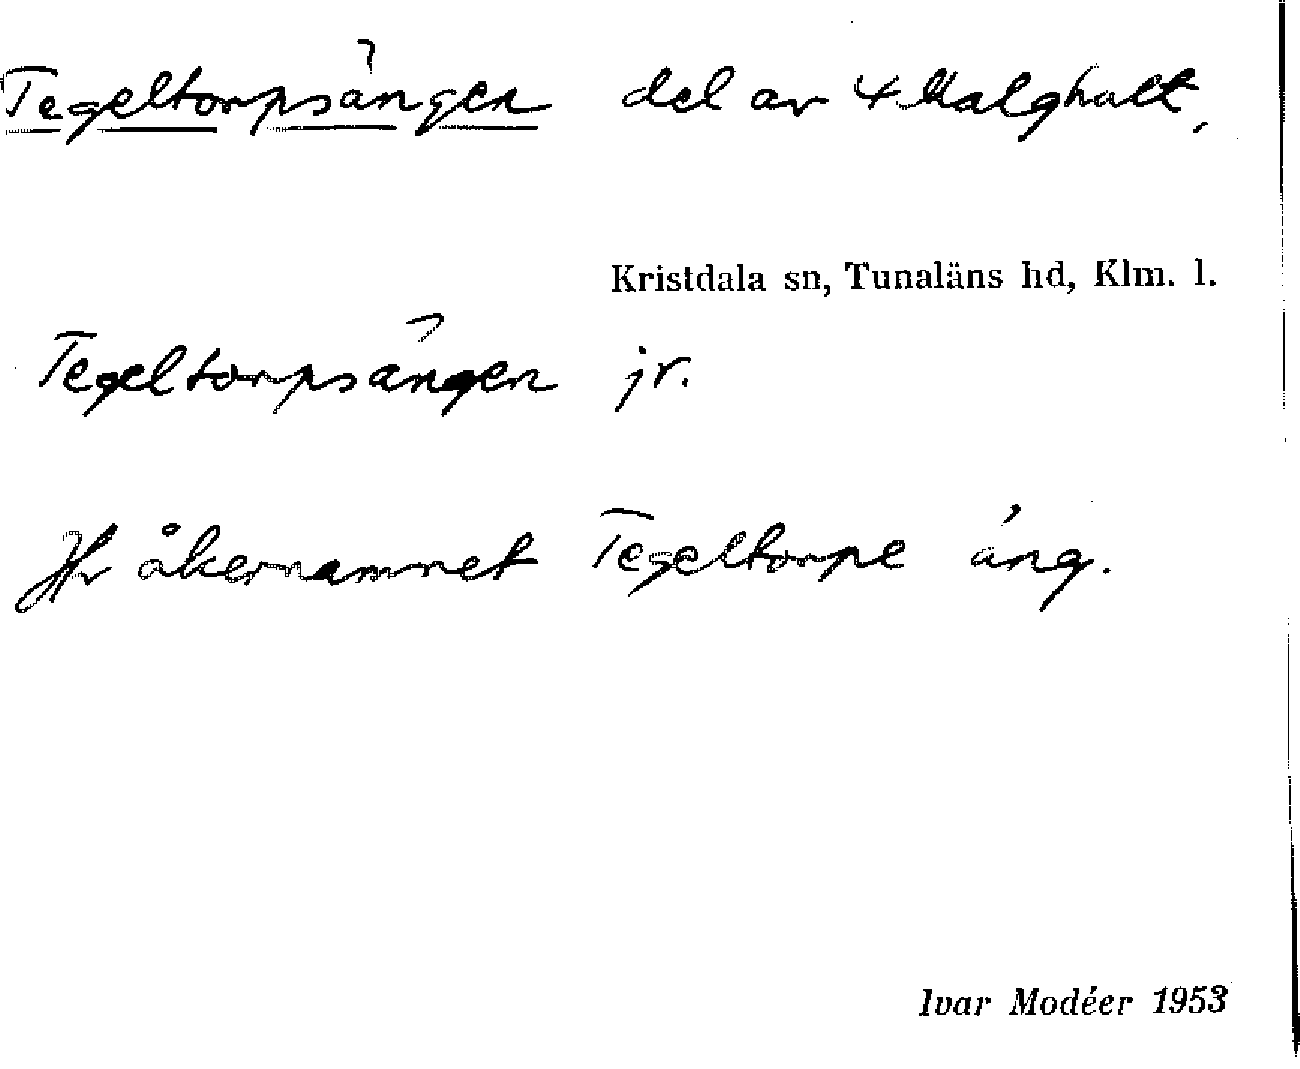 Tegeltorpsängen del av 4 Malghult,
Kristdala sn, Tunaläns hd, Klm. l.
Tegeltorpsängen jr.
Jfr åkernamnet Tegeltorpe äng.
Ivar Modéer 1953